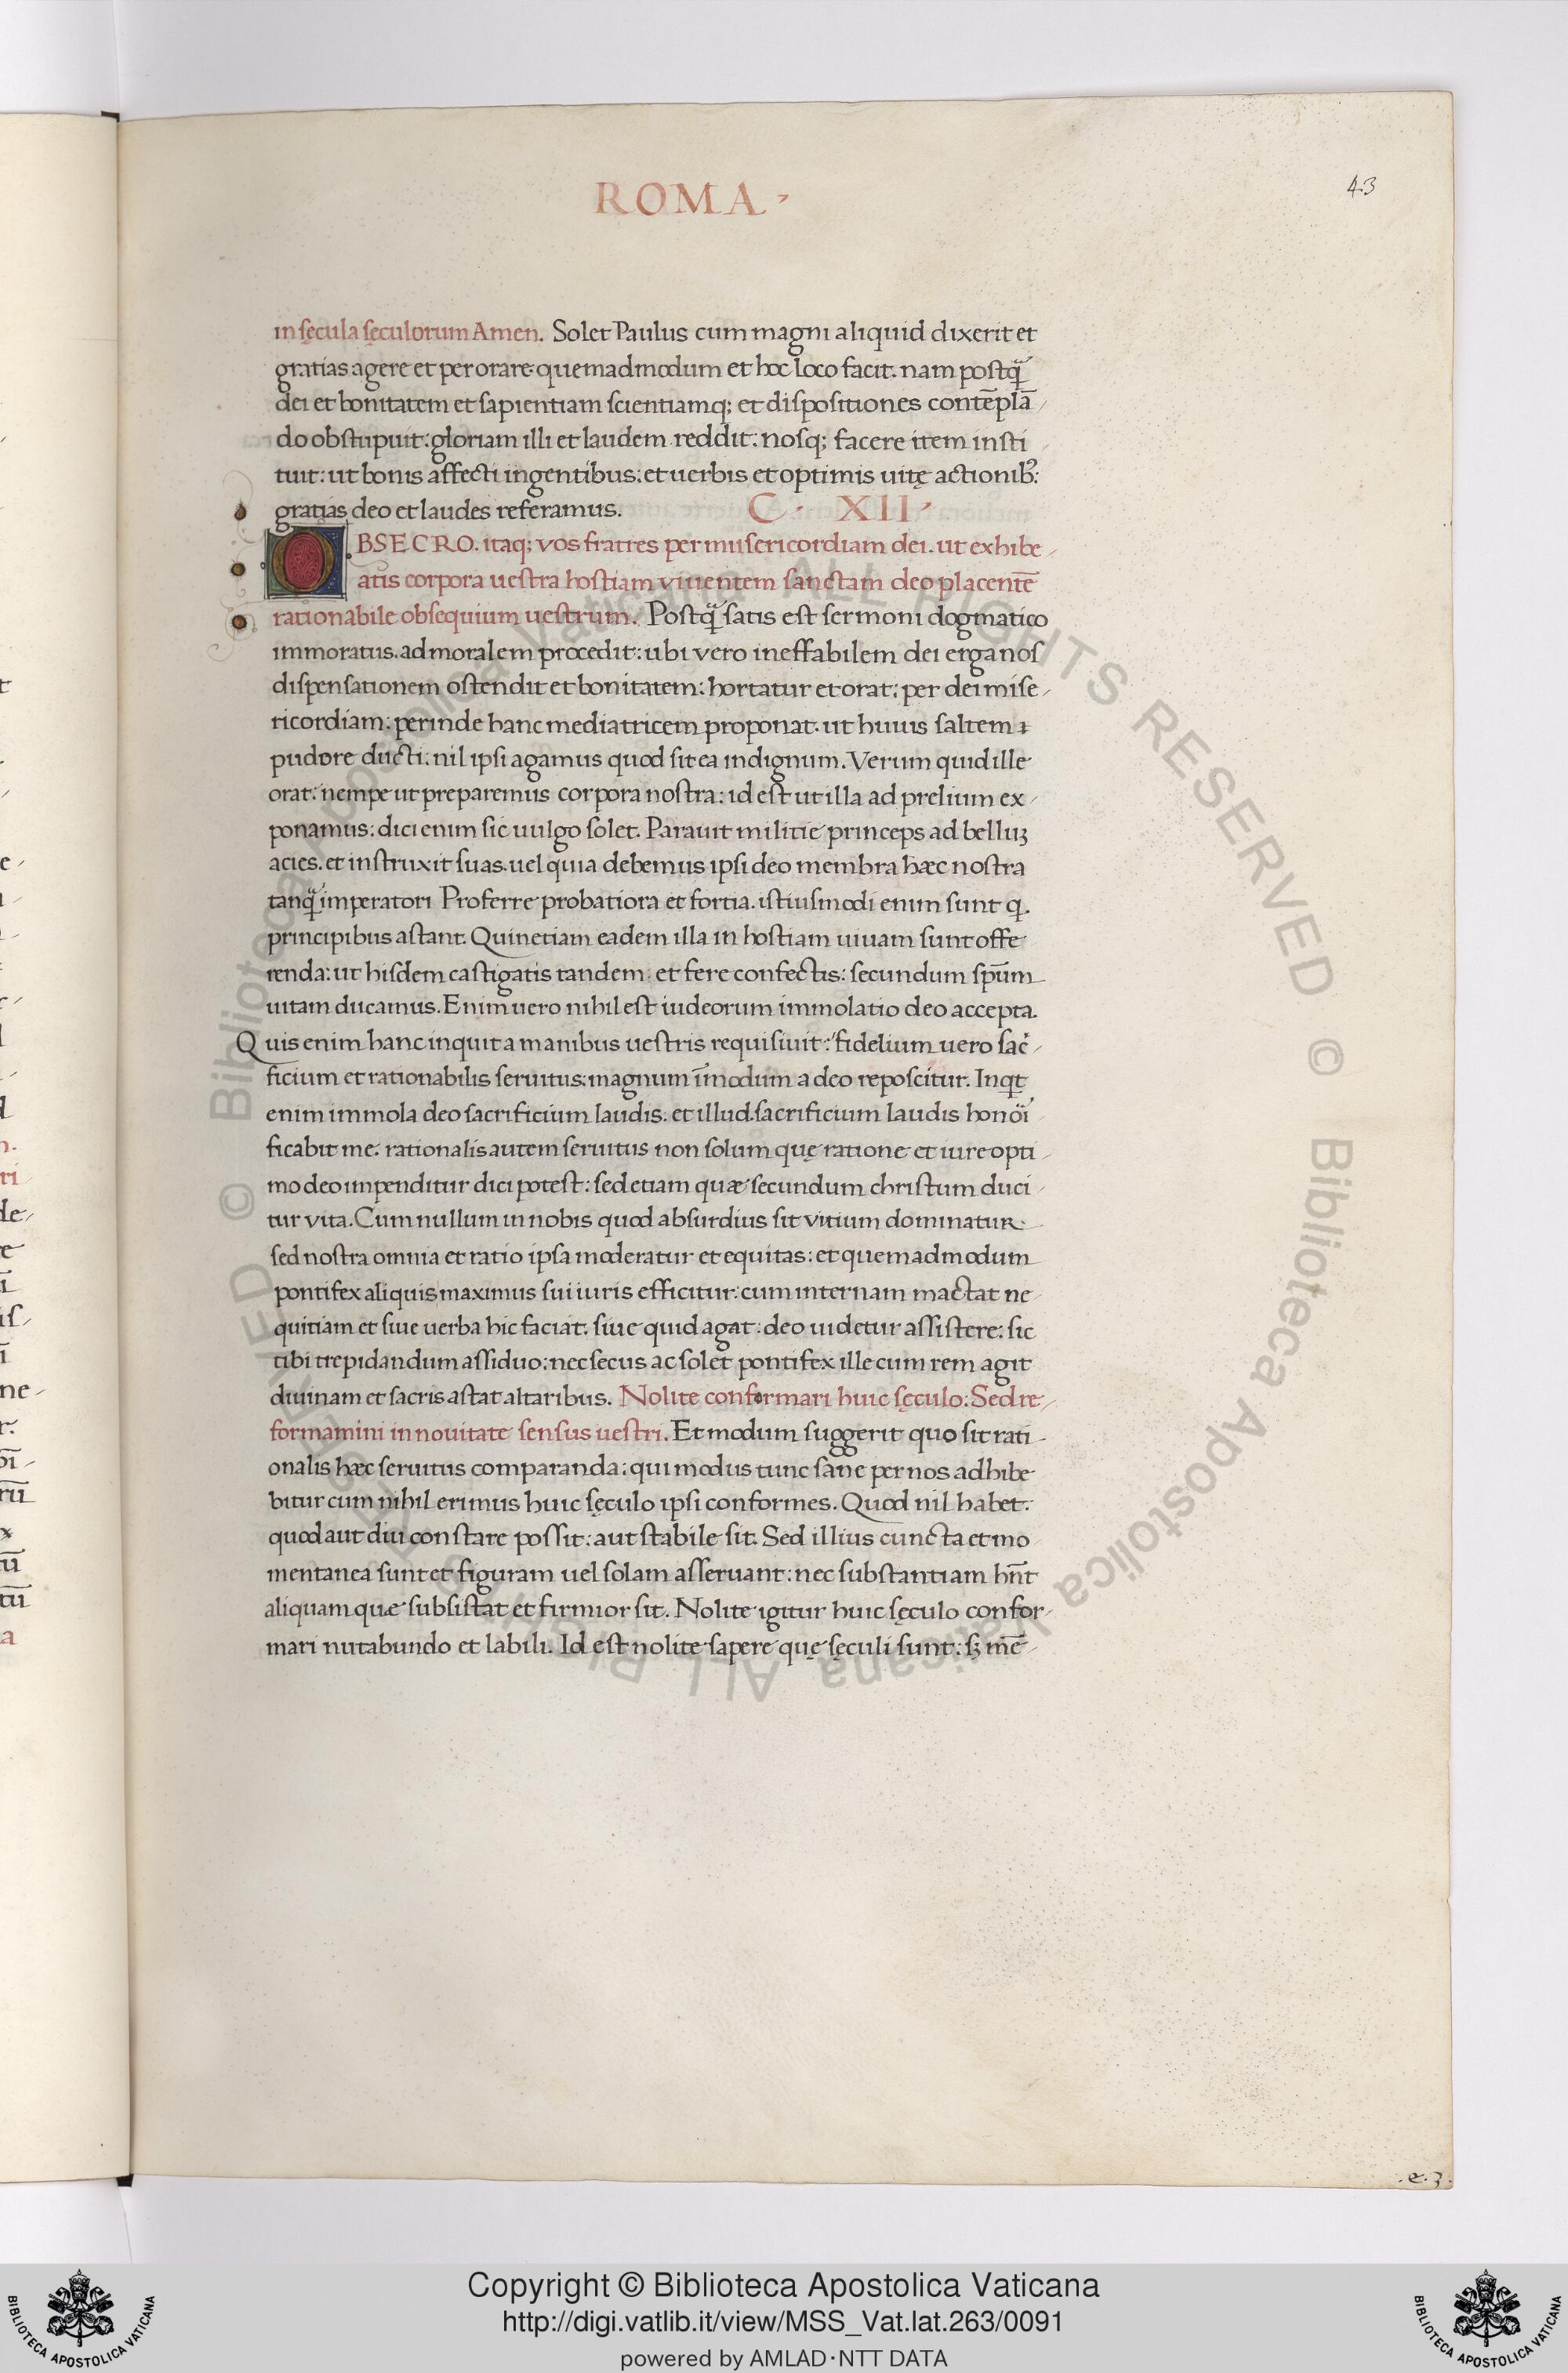 ROMA
43
in sęcula sęculorum Amen. Solet Paulus cum magni aliquid dixerit et
gratias agere et perorare quemadmodum et hoc loco facit. nam postq̃
dei et bonitatem et sapientiam scientiamq; et dispositiones contẽplã
do obstupuit: gloriam illi et laudem reddit: nosq; facere item insti
tuit: ut bonis affecti ingentibus: et uerbis et optimis uitę actionib⁹:
gratias deo et laudes referamus. C. XII.
OBSECRO. itaq; vos fratres per misericordiam dei. ut exhibe
atis corpora uestra hostiam viuentem sanctam deo placentẽ
rationabile obsequium uestrum. Postq̃ satis est sermoni dogmatico
immoratus. ad moralem procedit: ubi vero ineffabilem dei erga nos
dispensationem ostendit et bonitatem: hortatur et orat: per dei mise
ricordiam: perinde hanc mediatricem proponat. ut huius saltem
pudore ducti: nil ipsi agamus quod sit ea indignum. Verum quid ille
orat: nempe ut preparemus corpora nostra: id est ut illa ad prelium ex
ponamus: dici enim sic uulgo solet. Parauit militie princeps ad belluꝫ
acies. et instruxit suas. uel quia debemus ipsi deo membra hæc nostra
tanq̃ imperatori Proferre probatiora et fortia. istiusmodi enim sunt q.
principibus astant. Quinetiam eadem illa in hostiam uiuam sunt offe
renda: ut hisdem castigatis tandem et fere confectis: secundum spũm
uitam ducamus. Enim uero nihil est iudeorum immolatio deo accepta.
Quis enim hanc inquit a manibus uestris requisiuit: fidelium uero sac̃
ficium et rationabilis seruitus: magnum ĩmodum a deo reposcitur. Inqt
enim immola deo sacrificium laudis: et illud. sacrificium laudis honoi
ficabit me: rationalis autem seruitus non solum quę ratione et iure opti
mo deo impenditur dici potest: sed etiam quæ secundum christum duci
tur vita. Cum nullum in nobis quod absurdius sit vitium dominatur
sed nostra omnia et ratio ipsa moderatur et equitas: et quemadmodum
pontifex aliquis maximus sui iuris efficitur: cum internam mactat ne
quitiam et siue uerba hic faciat. siue quid agat: deo uidetur assistere: sic
tibi trepidandum assiduo: nec secus ac solet pontifex ille cum rem agit
diuinam et sacris astat altaribus. Nolite conformari huic sęculo: Sed re
formamini in nouitate sensus uestri. Et modum suggerit quo sit rati
onalis hæc seruitus comparanda: qui modus tunc sane per nos adhibe
bitur cum nihil erimus huic sęculo ipsi conformes. Quod nil habet:
quod aut diu constare possit: aut stabile sit. Sed illius cuncta et mo
mentanea sunt et figuram uel solam asseruant: nec substantiam hñt
aliquam quæ subsistat et firmior sit. Nolite igitur huic sęculo confor
mari nutabundo et labili. Id est nolite sapere quę sęculi sunt: sꝫ mẽ
.e.3.
Copyright © Biblioteca Apostolica Vaticana
http://digi.vatlib.it/view/MSS_Vat.lat.263/0091
powered by AMLAD·NTT DATA